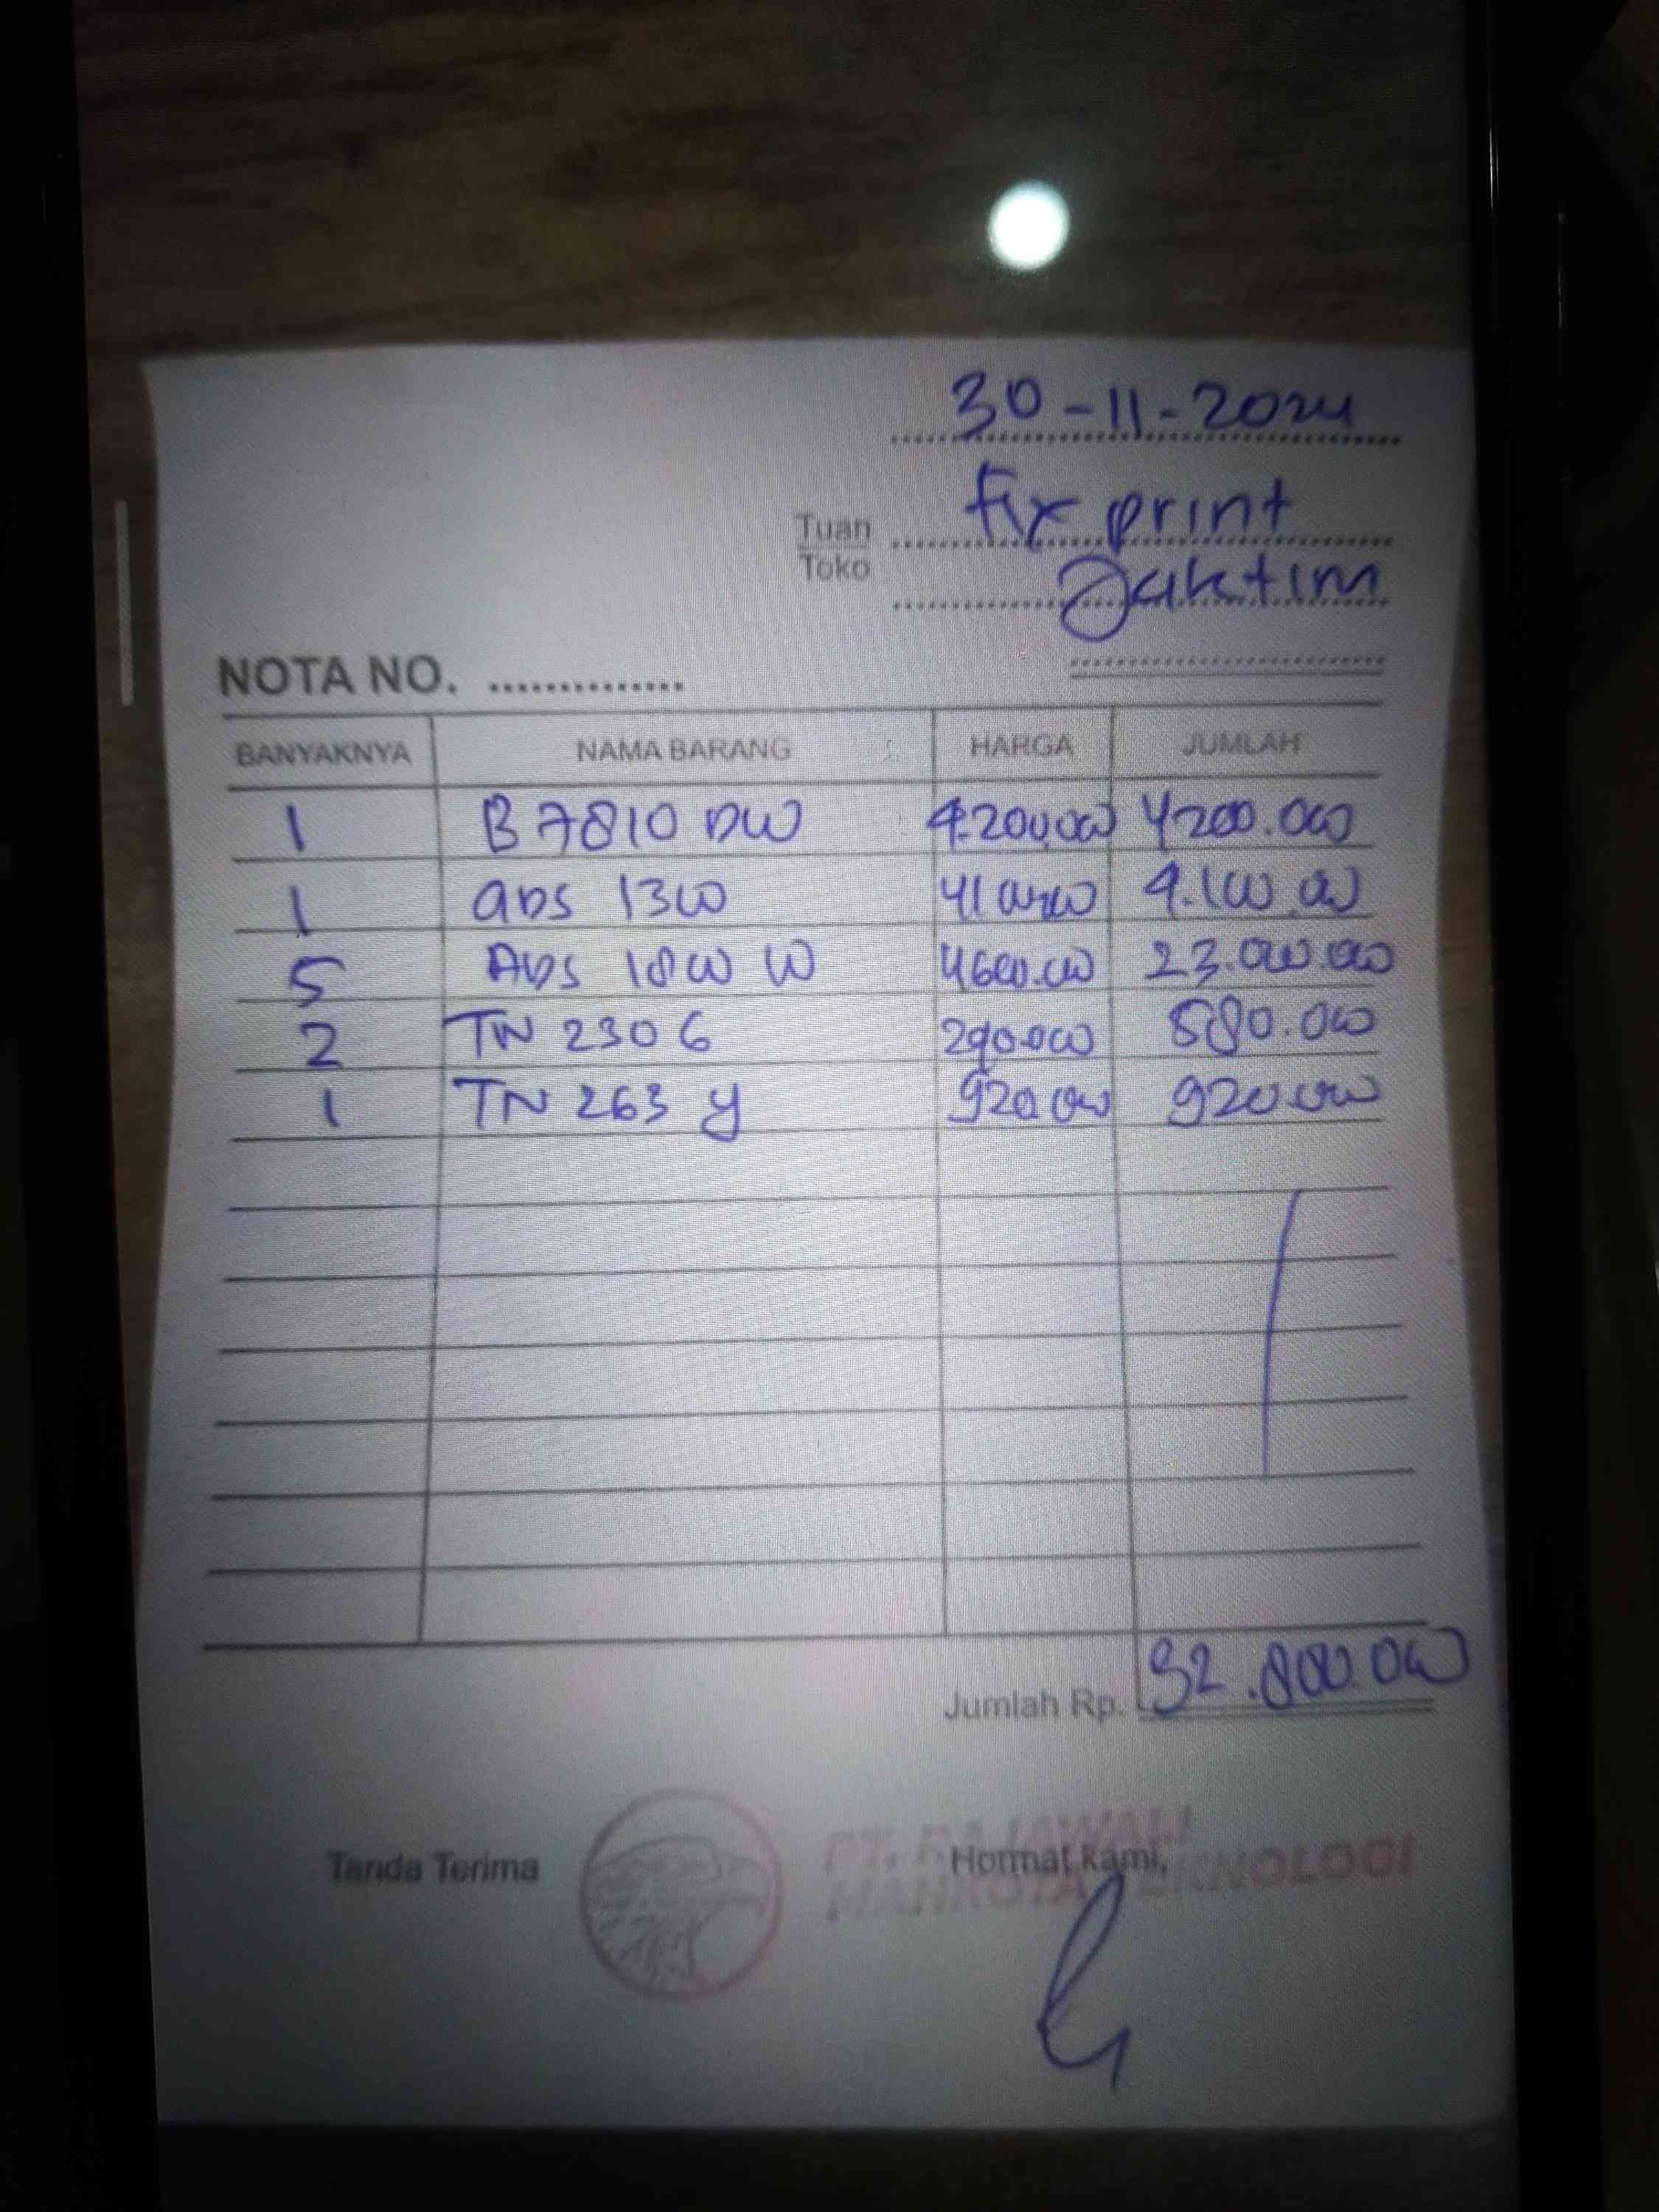 30-11-2024
Tuan fix print
Toko Jaktim
NOTA NO. ..............
BANYAKNYA NAMA BARANG HARGA JUMLAH
1 B 7810 DW 4.200.000 4200.000
1 ads 1300 4100.000 4.100.000
5 Ads 1800 W 4600.000 23.000.000
2 TN 2306 290.000 580.000
1 TN 263 y 920.000 920.000
Jumlah Rp. 32.800.000
Tanda Terima Hormat kami,
PT. RAJAWALI
MAHKOTA TEKNOLOGI